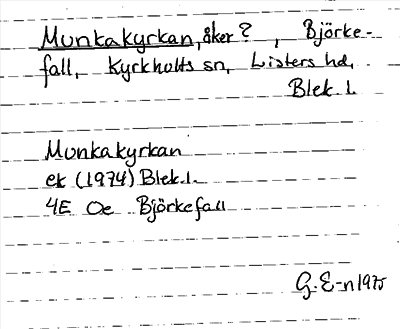 Munkakyrkan, åker?, Björke-
fall, Kyrkhults sn, Listers hd,
Blek. l.
Munkakyrkan
ek (1974) Blek. l.
4E Oe Björkefall
G. E-n 1975